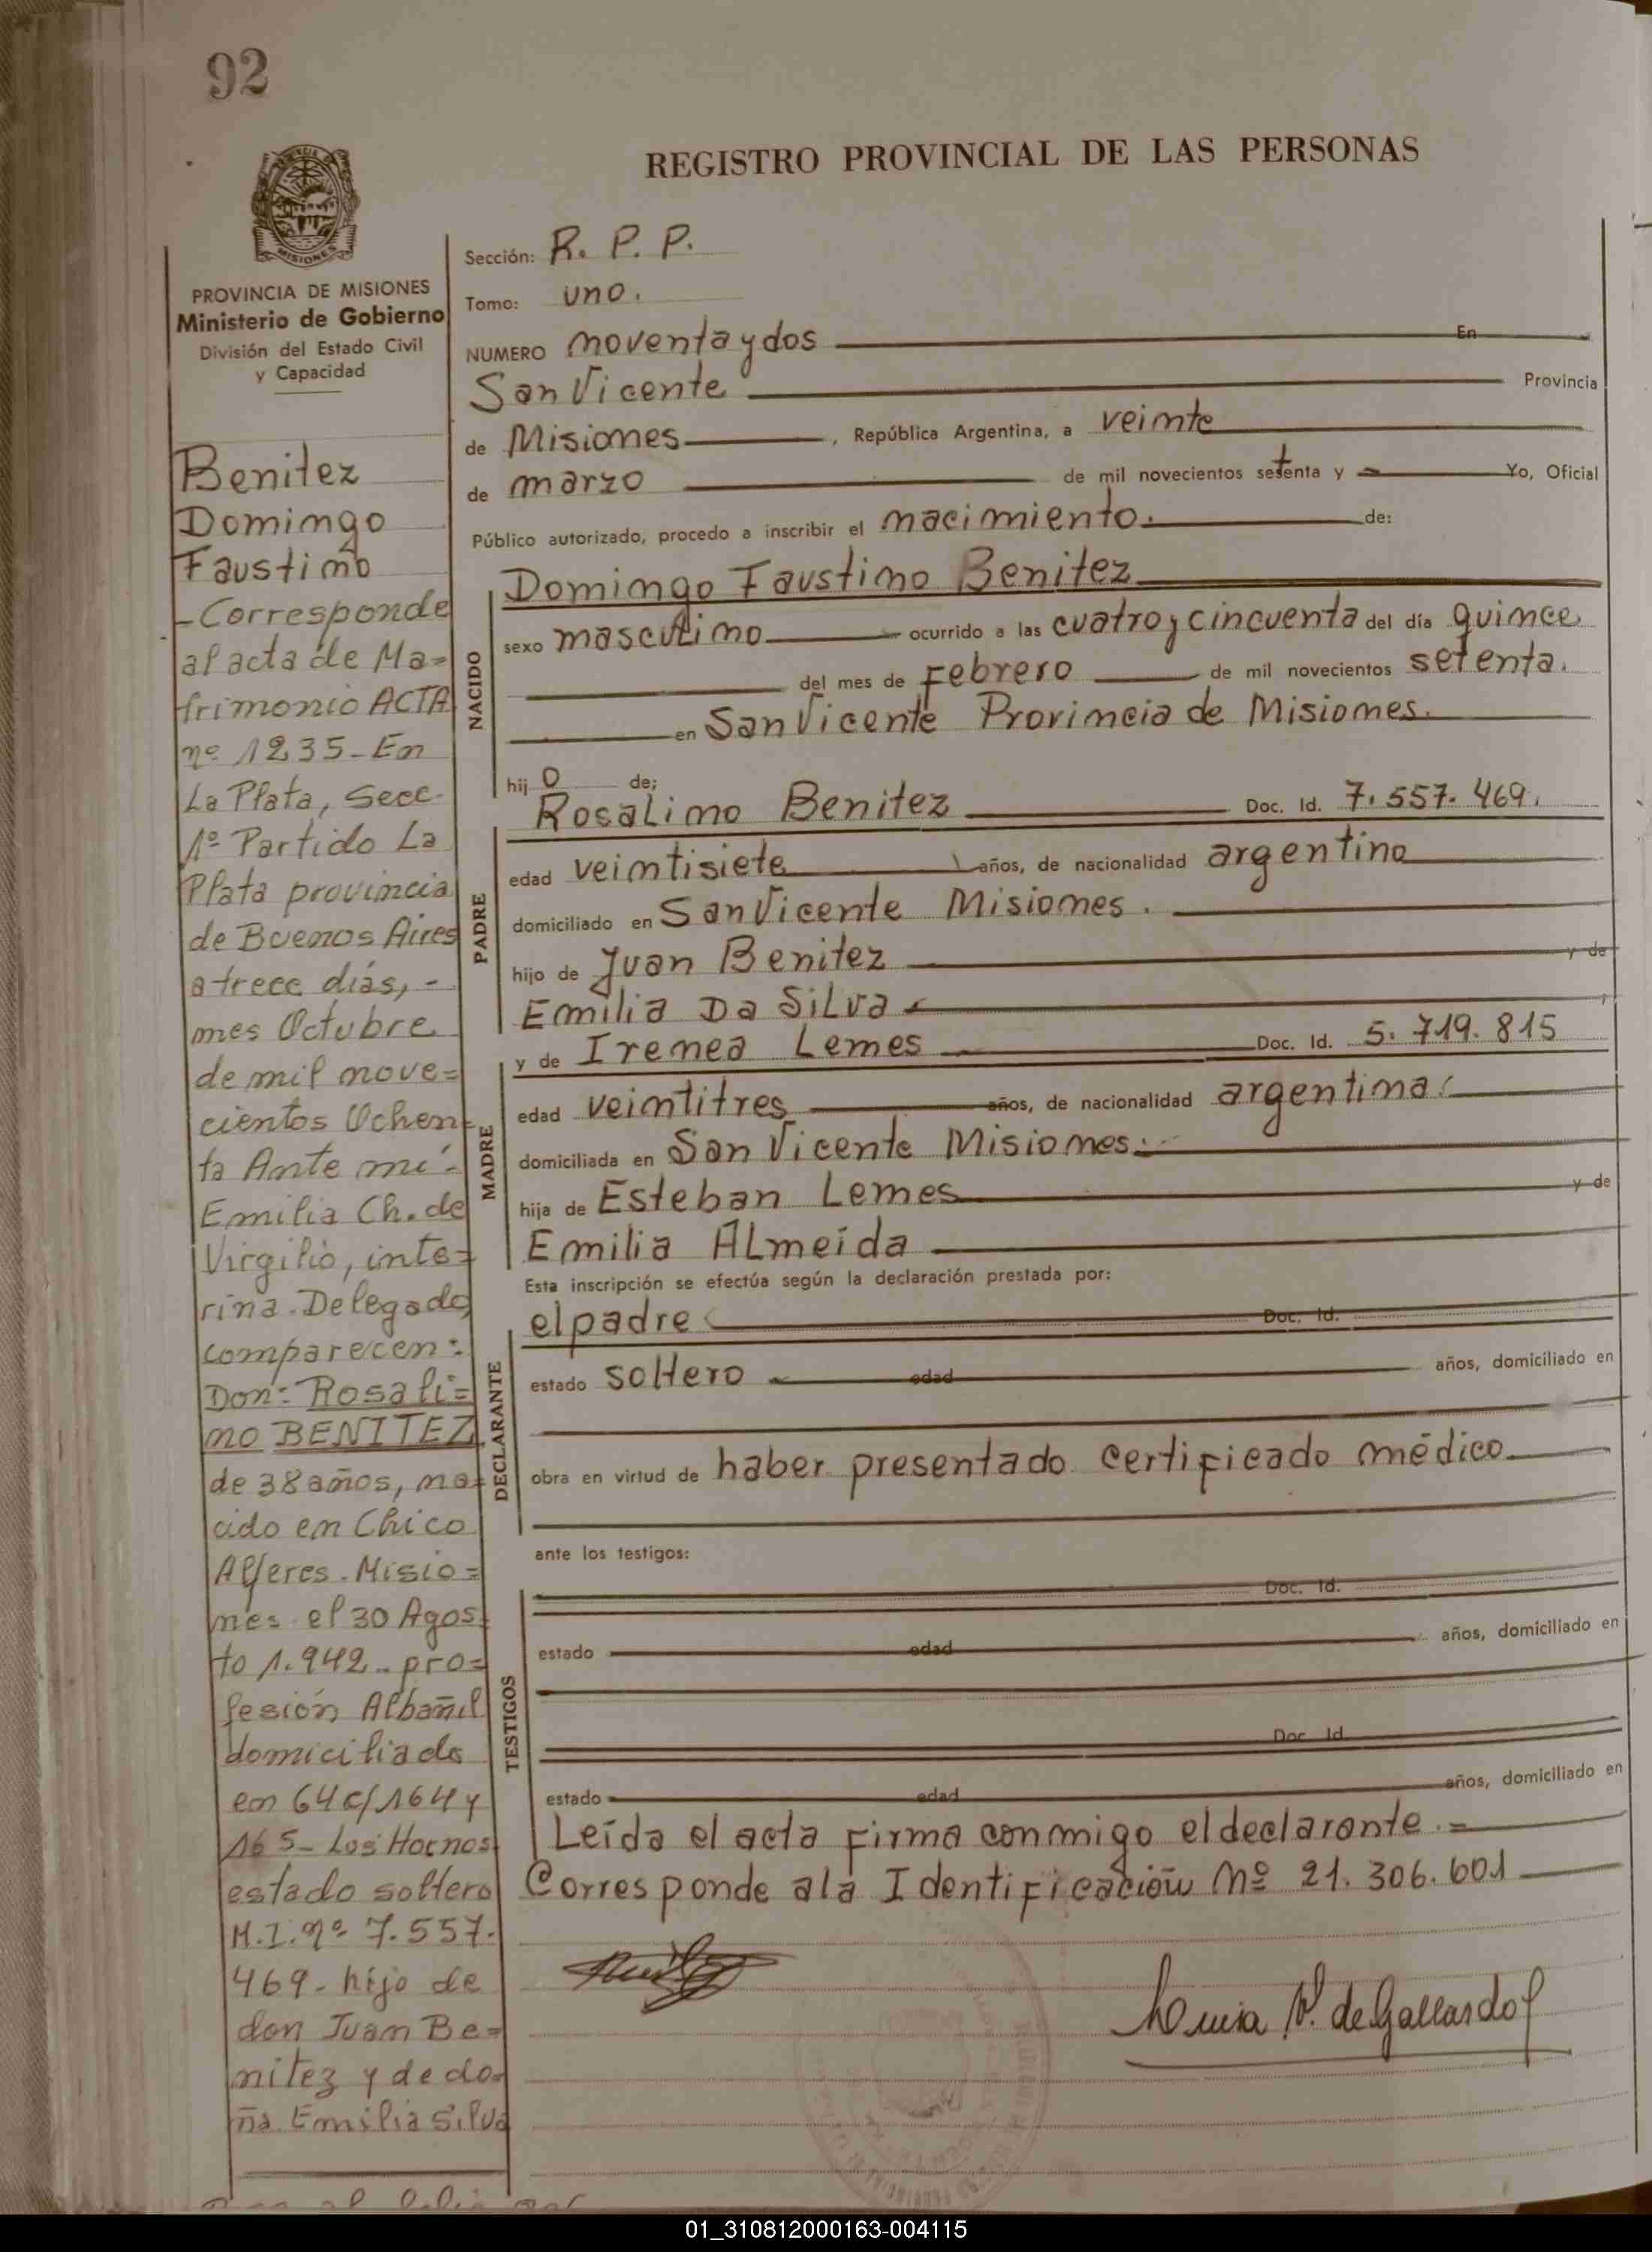 92
REGISTRO PROVINCIAL DE LAS PERSONAS
MISIONES
PROVINCIA DE MISIONES
Ministerio de Gobierno
División del Estado Civil
y Capacidad
Benitez
Domingo
Faustino
- Corresponde
al acta de Ma=
trimonio ACTA
nº 1235 - En
La Plata, Secc.
1º Partido La
Plata provincia
de Buenos Aires
a trece días, -
mes Octubre
de mil nove=
cientos Ochen=
ta Ante mí -
Emilia Ch. de
Virgilio, inte=
rina. Delegado,
comparecen:
Don: Rosali=
no BENITEZ
de 38 años, na=
cido en Chico
Alferes. Misio=
nes el 30 Agos=
to 1.942 - pro=
fesión Albañil
domiciliado
en 64 c/ 164 y
165 - Los Hornos
estado soltero
M.I. nº 7.557.
469 - hijo de
don Juan Be=
nitez y de do=
ña Emilia Silva
Sección: R. P. P.
Tomo: uno.
NUMERO noventa y dos En
San Vicente Provincia
de Misiones , República Argentina, a veinte
de marzo de mil novecientos setenta y - Yo, Oficial
Público autorizado, procedo a inscribir el nacimiento. de:
NACIDO
Domingo Faustino Benitez
sexo masculino ocurrido a las cuatro y cincuenta del día quince
del mes de Febrero de mil novecientos setenta.
en San Vicente Provincia de Misiones.
hij o de;
PADRE
Rosalino Benitez Doc. Id. 7.557.469.
edad veintisiete años, de nacionalidad argentino
domiciliado en San Vicente Misiones.
hijo de Juan Benitez y de
Emilia Da Silva
MADRE
y de Irenea Lemes Doc. Id. 5.719.815
edad veintitres años, de nacionalidad argentina
domiciliada en San Vicente Misiones.
hija de Esteban Lemes y de
Emilia ALmeida
Esta inscripción se efectúa según la declaración prestada por:
DECLARANTE
el padre Doc. Id.
estado soltero edad años, domiciliado en
obra en virtud de haber presentado certificado médico
ante los testigos:
TESTIGOS
Doc. Id.
estado edad años, domiciliado en
Doc. Id.
estado edad años, domiciliado en
Leída el acta firma conmigo el declarante. =
Corresponde a la Identificación Nº 21.306.601
de Gallardo
01_310812000163-004115